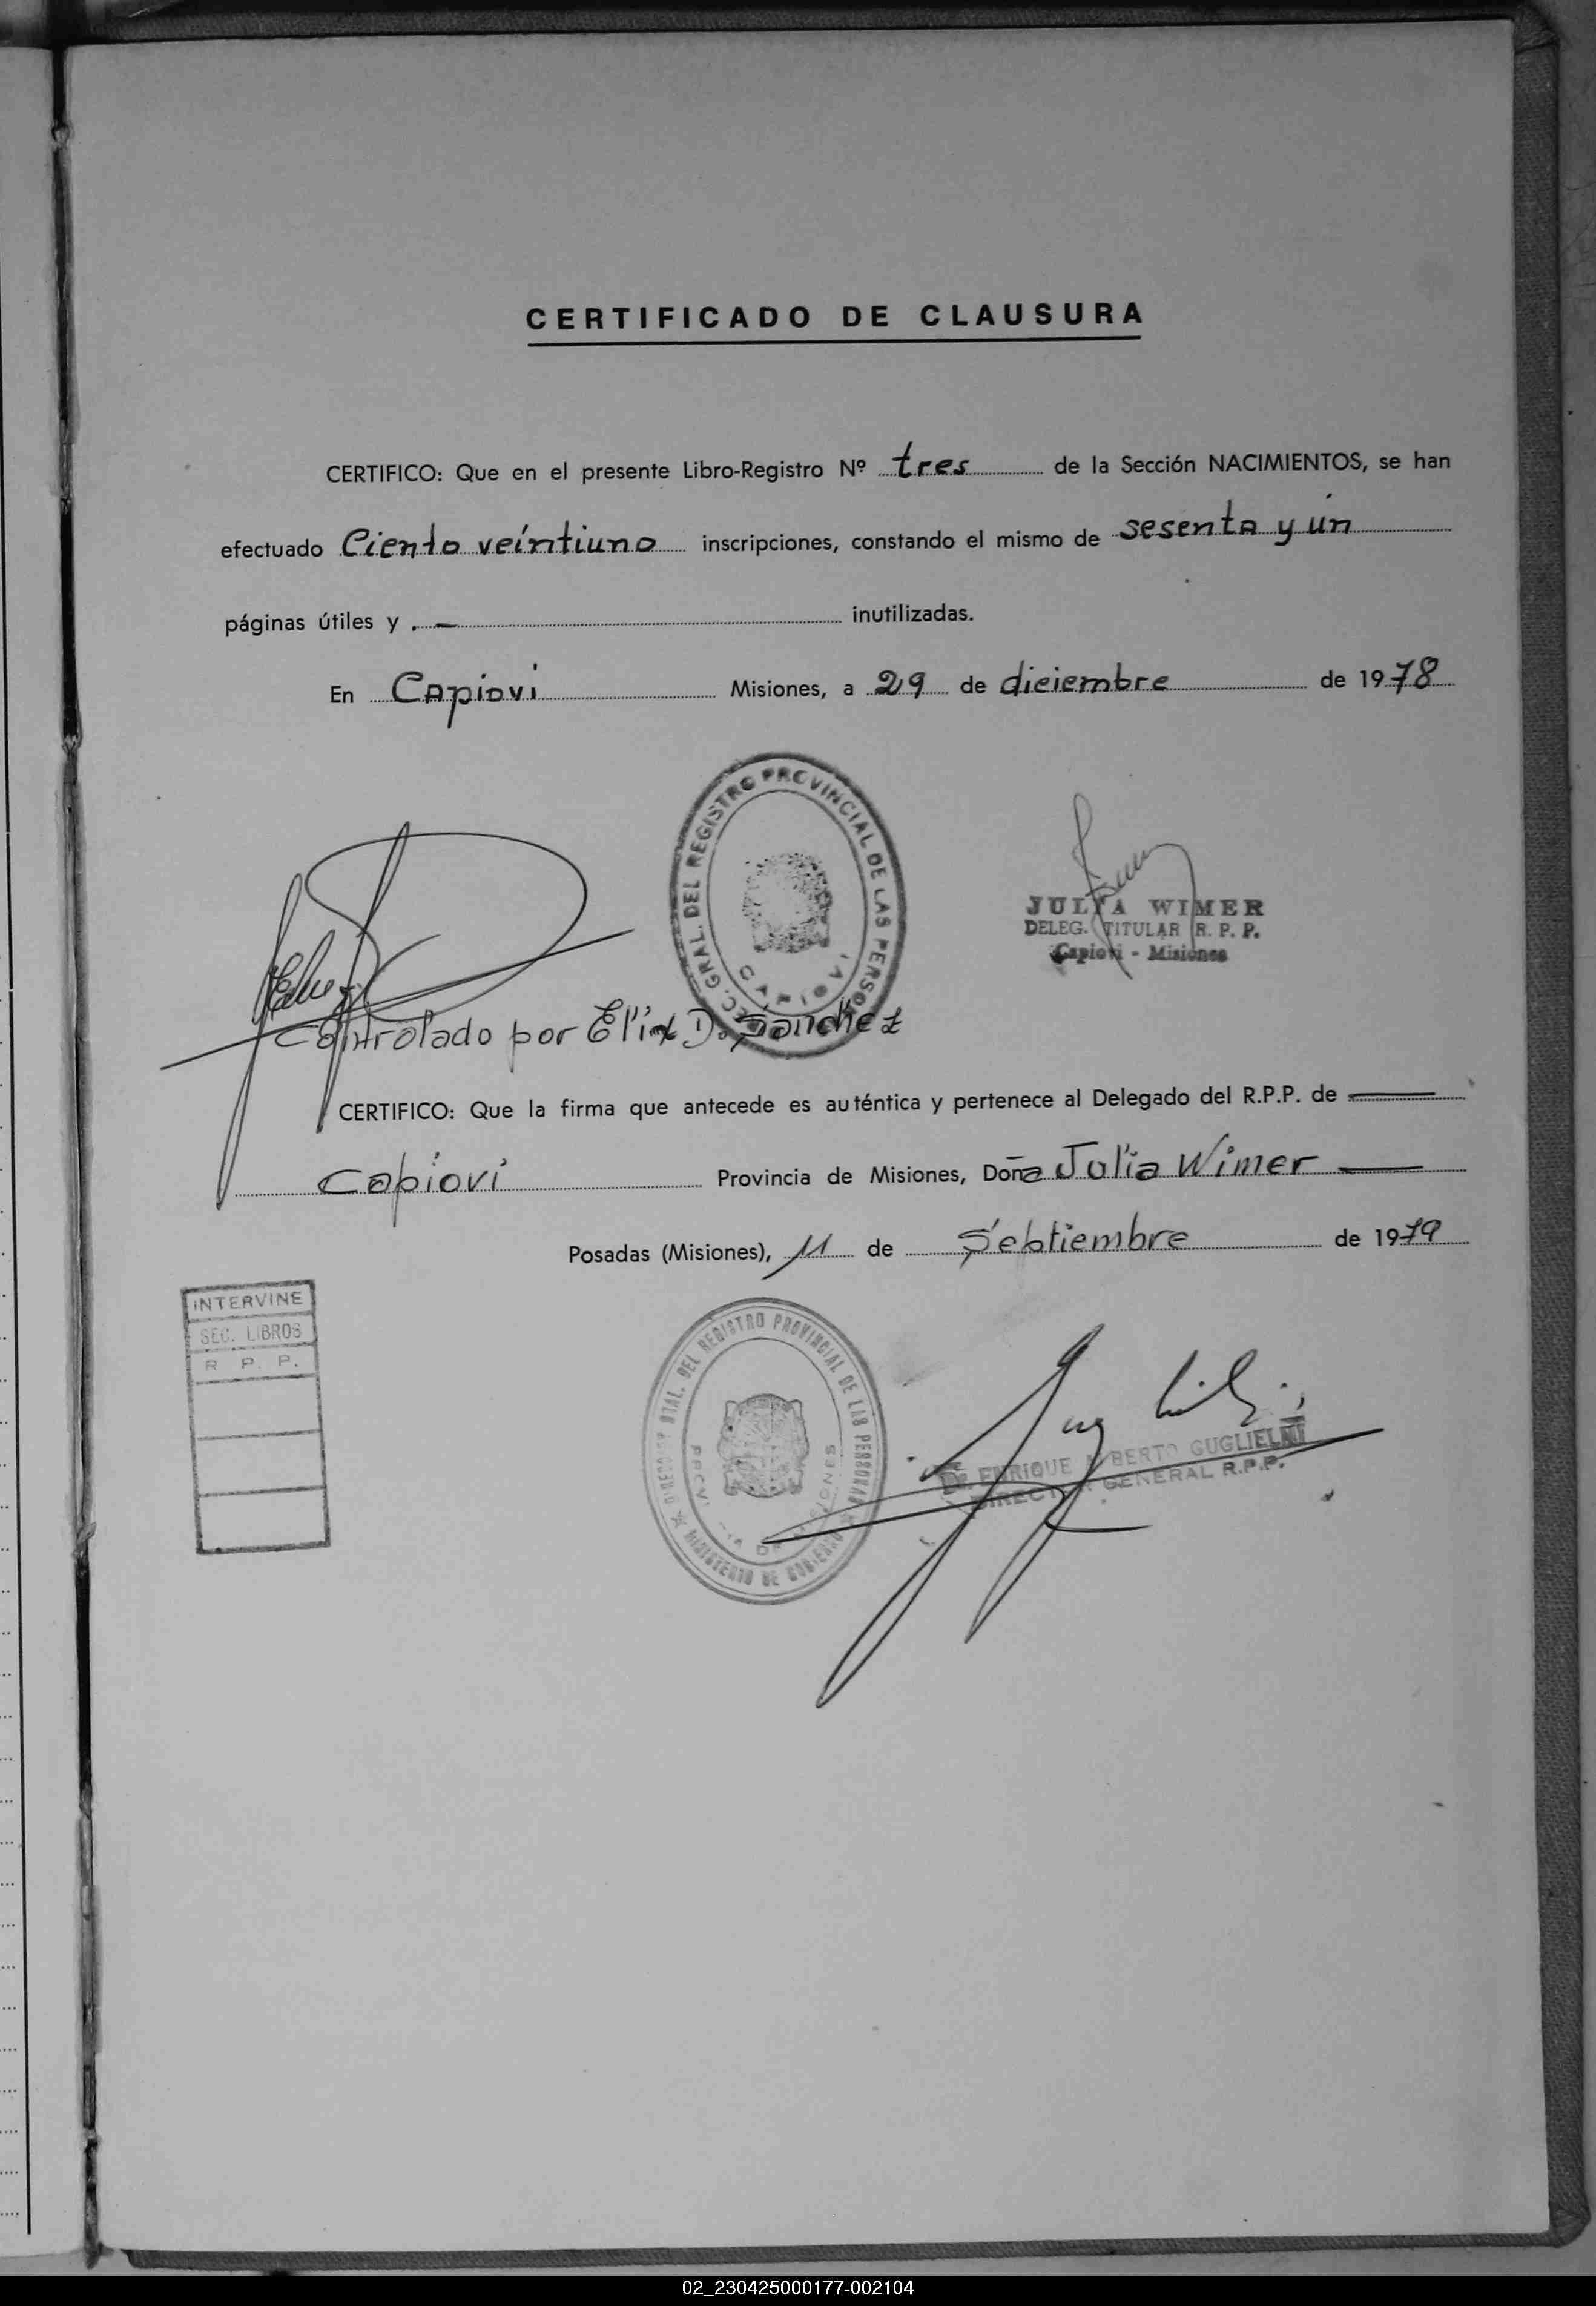 CERTIFICADO DE CLAUSURA
CERTIFICO: Que en el presente Libro-Registro Nº tres de la Sección NACIMIENTOS, se han
efectuado Ciento veintiuno inscripciones, constando el mismo de sesenta y un
páginas útiles y . — inutilizadas.
En Capiovi Misiones, a 29 de diciembre de 1978
GRAL. DEL REGISTRO PROVINCIAL DE LAS PERSO
CAPIOVI
JULIA WIMER
DELEG. TITULAR R. P. P.
Capiovi - Misiones
Controlado por Elix D. Sanchez
CERTIFICO: Que la firma que antecede es auténtica y pertenece al Delegado del R.P.P. de —
Capiovi Provincia de Misiones, Doña Julia Wimer —
Posadas (Misiones), 11 de Septiembre de 1979
INTERVINE
SEC. LIBROS
R P. P.
GRAL. DEL REGISTRO PROVINCIAL DE LAS PERSONAS
MINISTERIO DE GOBIERNO
Dr. ENRIQUE ALBERTO GUGLIELMI
DIRECTOR GENERAL R.P.P.
02_230425000177-002104